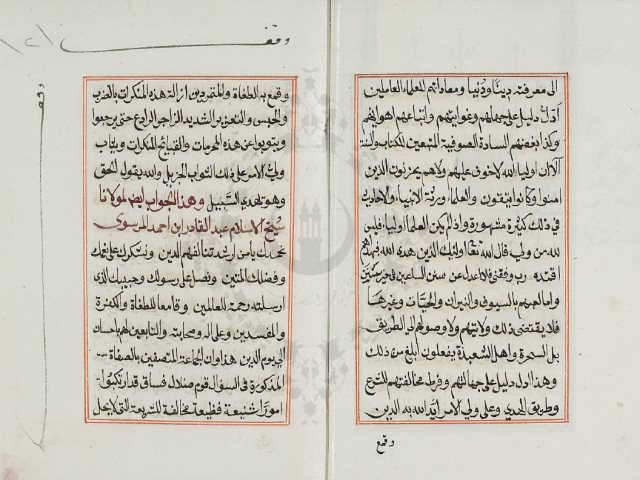 الى معرفته دينا ودنيا ومعاداتهم للعلماء العاملين
أدل دليل على جهلهم وغوايتهم واتباعهم اهوائهم
وكذا بغضهم السادة الصوفية المتبعين للكتاب والسنة
الا ان اولياء الله لا خوف عليهم ولا هم يحزنون الذين
امنوا وكانوا يتقون والعلماء ورثة الانبياء والاحاديث
في ذلك كثيرة مشهورة واذا لم يكن العلماء اولياء فليس
لله من ولي قال الله تعا اولئك الذين هدى الله فبهداهم
اقتده رب وفقني فلا اعدل عن سنن الساعين في خير سنن
واما لعبهم بالسيوف والنيران والحيات وغيرها
فلا يقتضى ذلك ولايتهم ولا وصولهم الى الطريق
بل السحرة واهل الشعبذة يفعلون أبلغ من ذلك
وهذا ادل دليل على جهالتهم وفرط مخالفتهم للشرع
وطريق الحمدي وعلى ولي الامر أيد الله به الدين
وقمع
وقف
١٢١
وقف
وقمع به الطغاة والمتمردين ازالة هذه المنكرات بالضرب
والحبس والتعزير الشديد الزاجر الرادع حتى يرجعوا
ويتوبوا عن هذه المحرمات والقبائح المنكرات ويثاب
ولي الامر على ذلك الثواب الجزيل والله يقول الحق
وهو يهدي السبيل وهذا الجواب ايض لمولانا
شيخ الاسلام عبد القادر ابن احمد المرسوى
نحمدك يا من ارشدتنا لفهم الدين ونشكرك على نعمك
وفضلك المتين ونصلى على رسولك وحبيبك الذى
ارسلته رحمة للعالمين وقامعا للطغاة والكفرة
والمفسدين وعلى اله وصحابته والتابعين لهم باحسان
الى يوم الدين هذا وان الجماعة المتصفين بالصفاة
المذكورة في السؤال قوم ضلال فساق قد ارتكبوا
امورا شنيعة فظيعة مخالفة للشريعة التى لا يحل